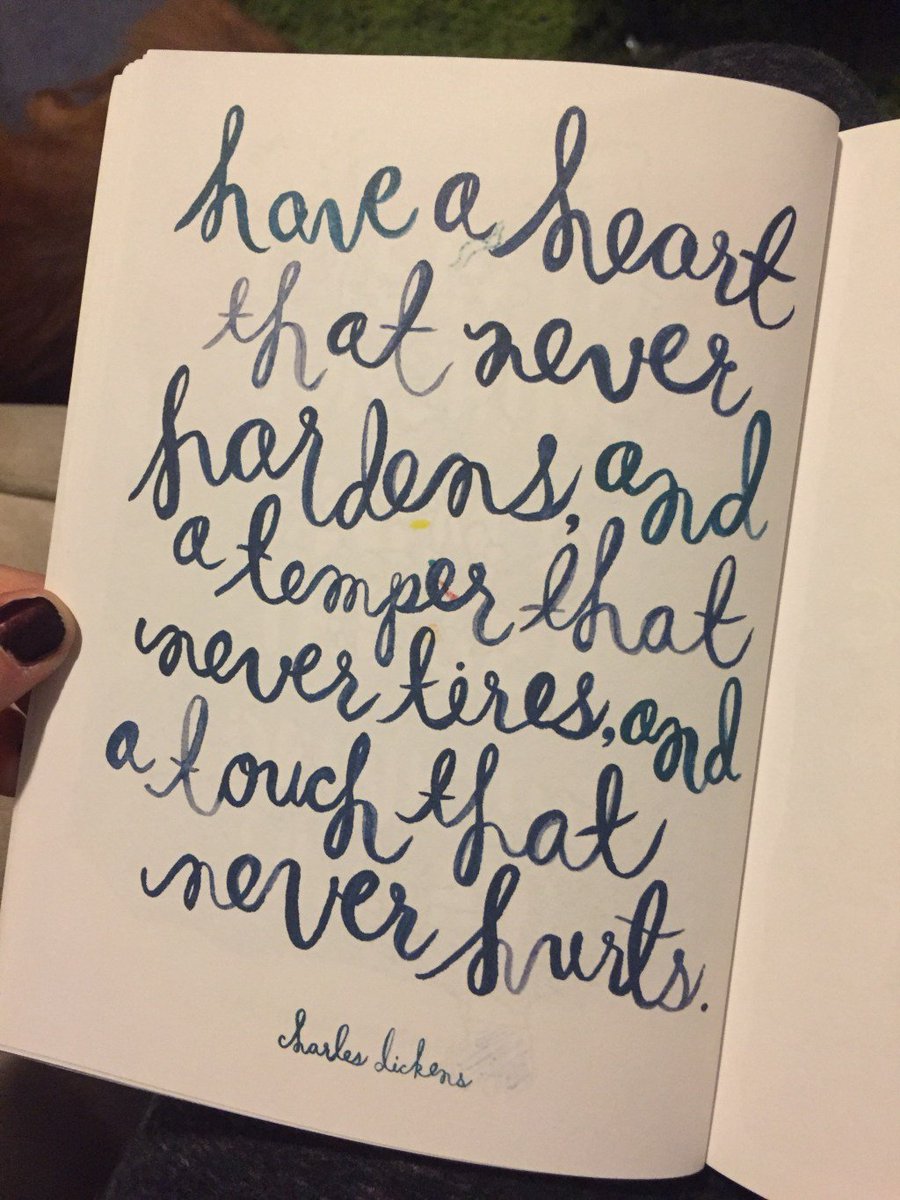 have a heart
that never
hardens, and
a temper that
never tires, and
a touch that
never hurts.
charles dickens